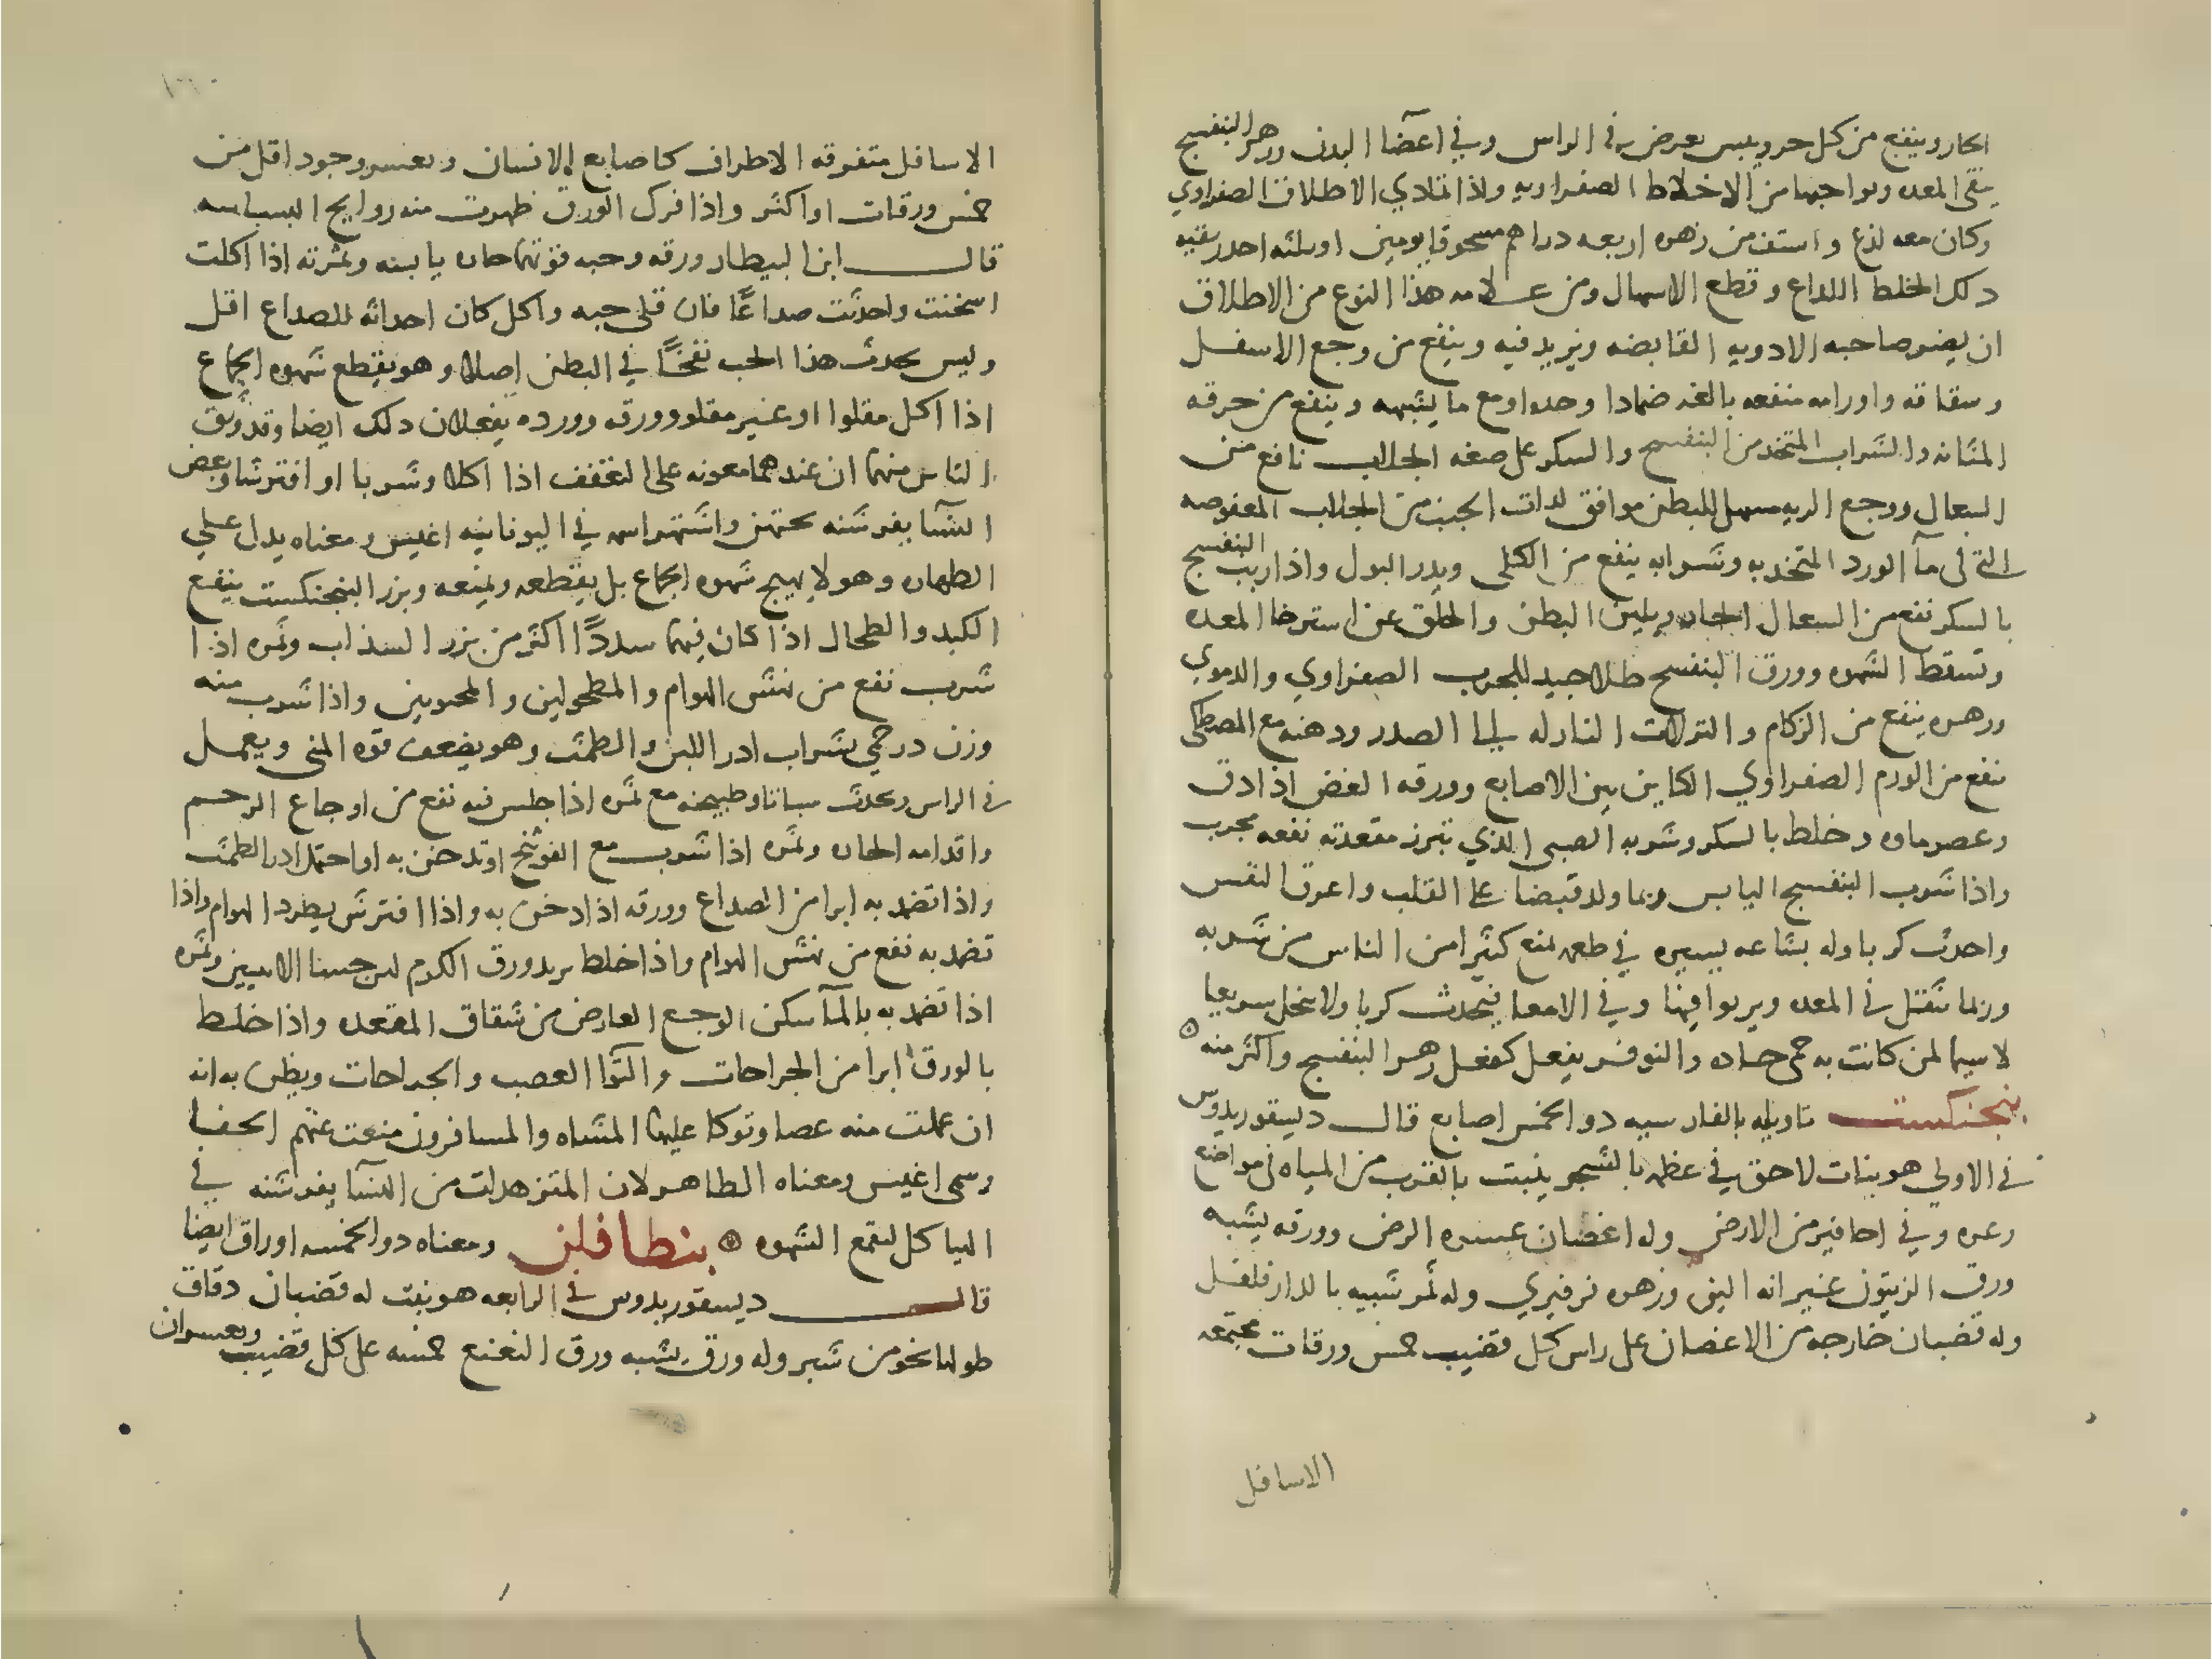 الحار وينفع من كل حر ويبس يعرض في الراس وفي اعضا البدن وزهر البنفسج
ينقي المعده ونواحيها من الاخلاط الصفراويه واذا تمادي الاطلاق الصفراوي
وكان معه لذع واستف من زهره اربعه دراهم مسحوقا يومين او ثلثه احدر بقيه
ذلك الخلط اللداع وقطع الاسهال ومن علامه هذا النوع من الاطلاق
ان يضر صاحبه الادويه القابضه ويزيد فيه وينفع من وجع الاسفل
وشقاقه واورامه منفعه بالغه ضمادا وحده او مع ما يشبهه وينفع من حرقه
المثانه والشراب المتخذ من البنفسج والسكر على صفه الجلاب نافع من
السعال ووجع الريه مسهل للبطن موافق لذات الجنب من الجلاب المعفوصه
التي لى مآ الورد المتخد به وشرابه ينفع من الكلى ويدر البول واذا ربب البنفسج
بالسكر نفع من السعال الحاد ويلين البطن والحلق عن استرخا المعده
وتسقط الشهوه وورق البنفسج طلا جيد للجرب الصفراوي والدموي
وزهره ينفع من الزكام والنزلات النازله الى الصدر ودهنه مع المصطكى
نفع من الورم الصفراوي الكاين بين الاصابع وورقه الغض اذا دق
وعصر ماوه وخلط بالسكر وشربه الصبى الذي تبرز مقعدته نفعه مجرب
واذا شرب البنفسج اليابس ربما ولد قبضا على القلب واعوق النفس
واحدث كربا وله بشاعه يسيره في طعمه تمنع كثيرا من الناس من شربه
وربما ثقل في المعده ويربوا فيها وفي الامعا فيحدث كربا ولا ينحل سريعا
لاسيما لمن كانت به حمى حاده والنوفر يفعل كفعل زهر البنفسج واكثر منه
بنجنكست تاويله بالفارسيه دو الخمس اصابع قال ديسقوريدوس
في الاولي هو نبات لاحق في عظمه بالشجر ينبت بالقرب من المياه في مواضع
وعره وفي احافير من الارض وله اغصان عسره الرض وورقه يشبه
ورق الزيتون غير انه الين وزهره فرفيري وله ثمر شبيه بالدار فلفل
وله قضبان خارجه من الاغصان على راس كل قضيب خمس ورقات مجتمعه
الاسافل
١٦٠
الاسافل متفرقه الاطراف كاصابع الانسان ويعسر وجود اقل من
خمس ورقات او اكثر واذا فرك الورق ظهرت منه روايح البسباسه
قال ابن البيطار ورقه وحبه قوتهما حاره يابسه وثمرته اذا اكلت
اسخنت واحدثت صداعًا فان قلي حبه واكل كان احداثه للصداع اقل
وليس يحدث هذا الحب نفخًا في البطن اصلا وهو يقطع شهوه الجماع
اذا اكل مقلوا او غير مقلو وورقه وورده يفعلان دلك ايضا وقد وثق
الناس منهما ان عندهما معونه على التعفف اذا اكلا وشربا او افترشا وبعض
النسآ يفرشنه تحتهن واشتهر اسمه في اليونانيه اغنيس ومعناه يدل على
الطهاره وهو لا يهيج شهوه الجماع بل يقطعه ويمنعه وبزر البنجنكست ينفع
الكبد والطحال اذا كان فيهما سددًا اكثر من بزر السذاب وثمره اذا
شرب نفع من نهش الهوام والمطحولين والمحبونين واذا شرب منه
وزن درخمي بشراب ادر اللبن والطمث وهو يضعف قوه المني ويعمل
في الراس ويحدث سباتا وطبيخه مع ثمره اذا جلس فيه نفع من اوجاع الرحم
واورامه الحاره وثمره اذا شرب مع الفوتنج او تدخن به او احتمل ادر الطمث
واذا تضمد به ابرا من الصداع وورقه اذا دخن به واذا افترش يطرد الهوام واذا
تضمد به نفع من نهش الهوام واذا خلط بزبد وورق الكرم لين جسا الانثيين وثمره
اذا تضمد به بالمآ سكن الوجع العارض من شقاق المقعده واذا خلط
بالورق ابرا من الجراحات والتوا العصب والجراحات ويظن به انه
ان عملت منه عصا وتوكا عليها المشاه والمسافرون منعت عنهم الحفا
وسمى اغنيس ومعناه الطاهر لان المتزهدات من النسآ يفرشنه في
الهياكل لقمع الشهوه بنطافلن ومعناه دو الخمسه اوراق ايضا
قال ديسقوريدوس في الرابعه هو نبت له قضبان دقاق
طولها نحو من شبر وله ورق يشبه ورق النعنع خمسه على كل قضيب ويعسر ان